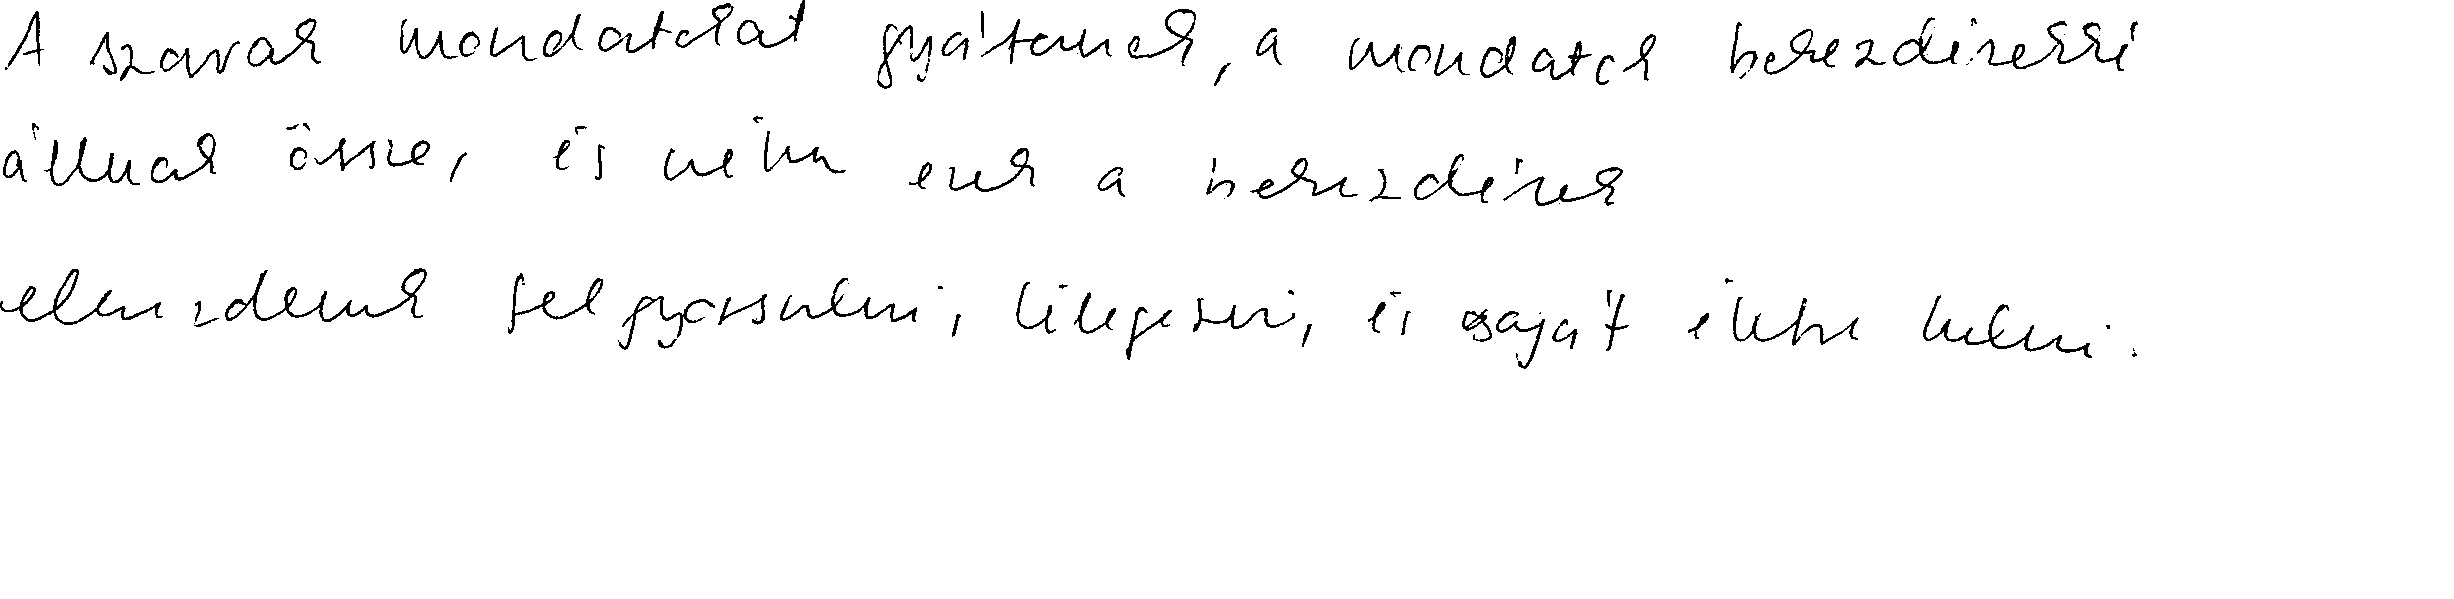 A szavak mondatokat gyártanak, a mondatok bekezdésekké
állnak össze, és néha ezek a bekezdések
elkezdenek felgyorsulni, lélegezni, és saját életre kelni.